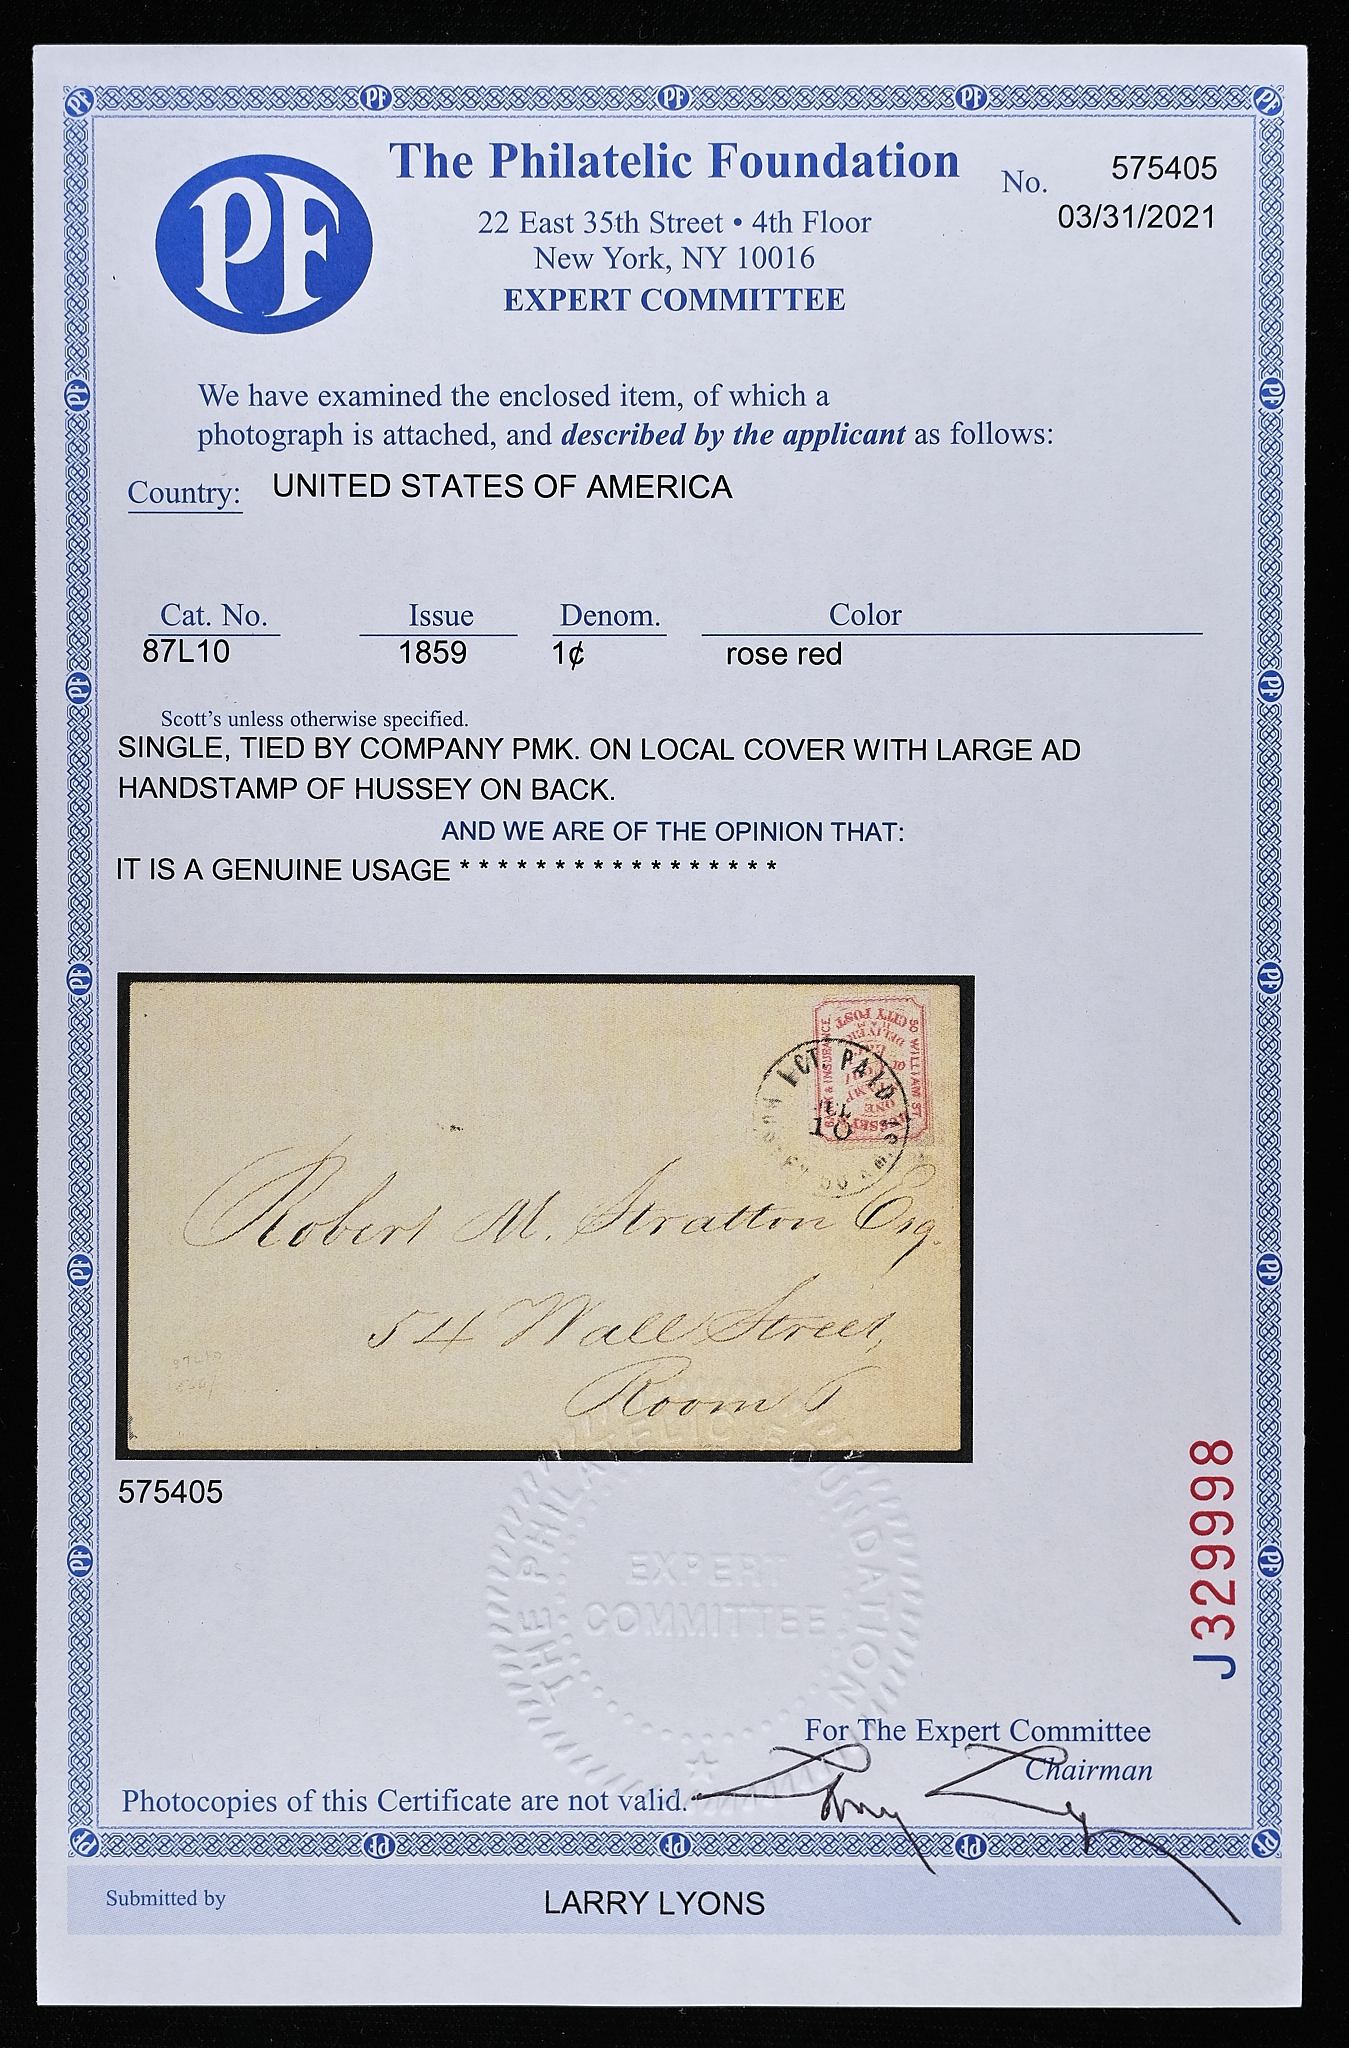 PF
The Philatelic Foundation
22 East 35th Street • 4th Floor
New York, NY 10016
EXPERT COMMITTEE
No. 575405
03/31/2021
We have examined the enclosed item, of which a
photograph is attached, and described by the applicant as follows:
Country: UNITED STATES OF AMERICA
Cat. No. Issue Denom. Color
87L10 1859 1¢ rose red
Scott's unless otherwise specified.
SINGLE, TIED BY COMPANY PMK. ON LOCAL COVER WITH LARGE AD
HANDSTAMP OF HUSSEY ON BACK.
AND WE ARE OF THE OPINION THAT:
IT IS A GENUINE USAGE * * * * * * * * * * * * * * * * *
50 WILLIAM ST
BANK & INSURANCE
CITY POST
HUSSEY
ONE
1 CT. PAID
JUL
10
Robert M. Stratton Esq.
54 Wall Street,
Room
87L10
575405
THE PHILATELIC FOUNDATION
EXPERT
COMMITTEE
J329998
For The Expert Committee
Chairman
Photocopies of this Certificate are not valid.
Submitted by LARRY LYONS